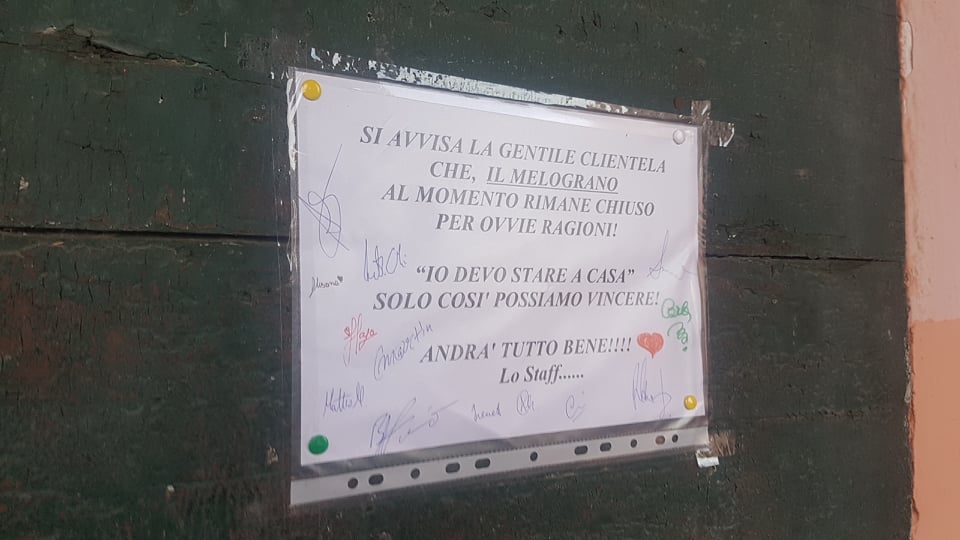 SI AVVISA LA GENTILE CLIENTELA
CHE, IL MELOGRANO
AL MOMENTO RIMANE CHIUSO
PER OVVIE RAGIONI!
"IO DEVO STARE A CASA"
SOLO COSI' POSSIAMO VINCERE!
ANDRA' TUTTO BENE!!!!
Lo Staff......